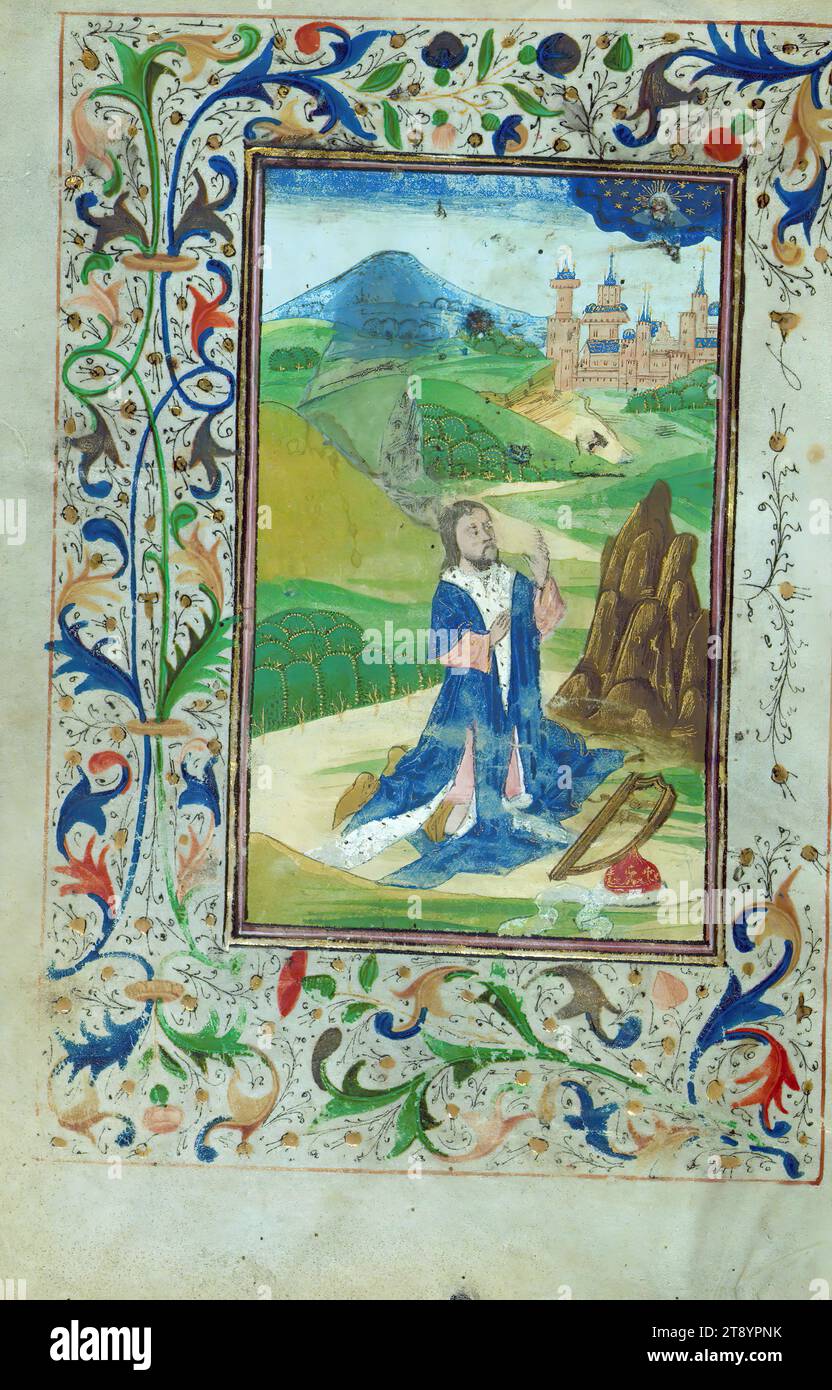 alamy
Image ID: T8YPNK
www.alamy.com